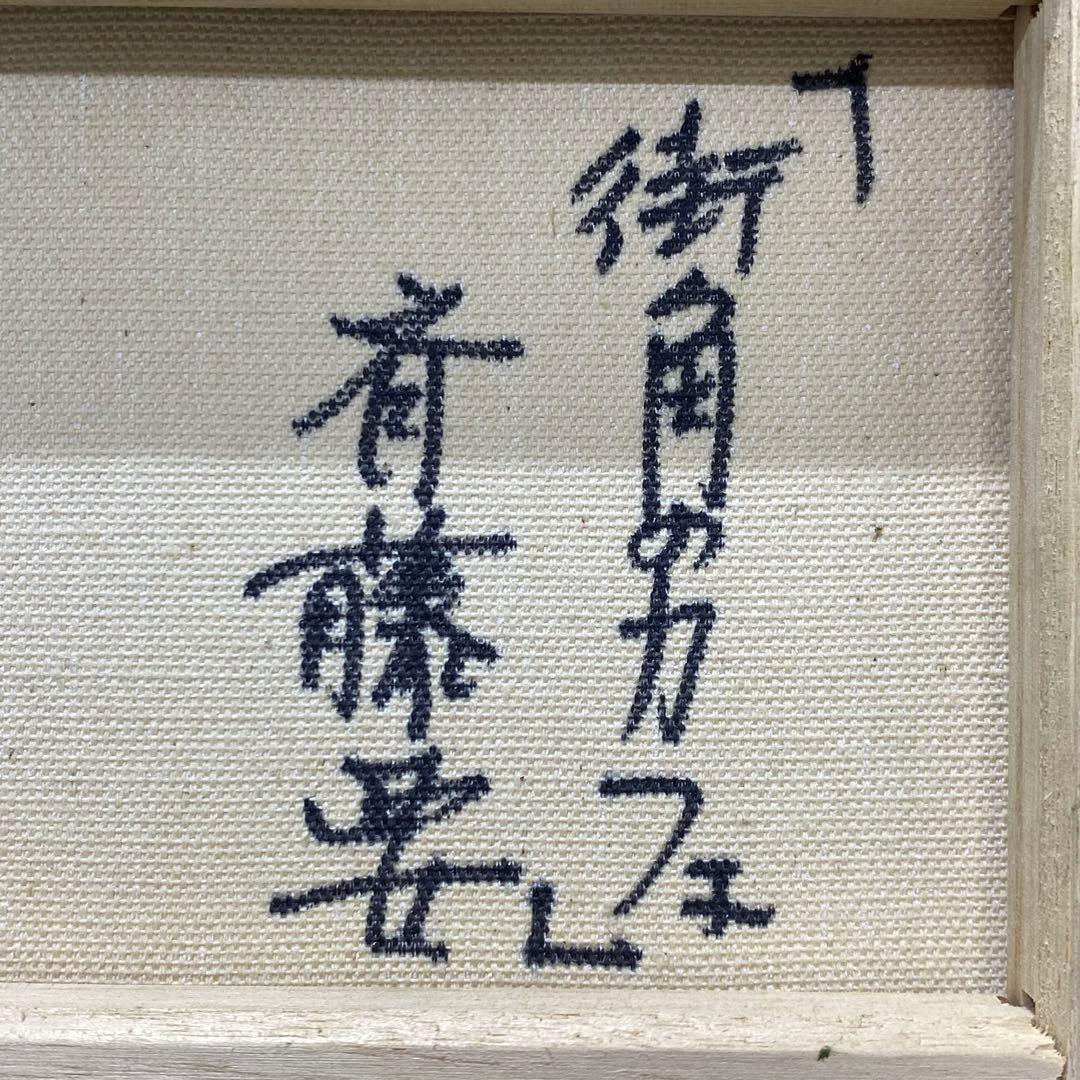 「街角のカフェ」
斉藤